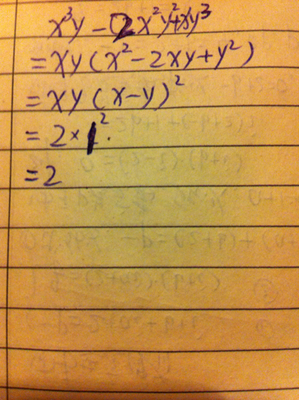 x³y-2x²y²+xy³
=xy(x²-2xy+y²)
=xy(x-y)²
=2×1².
=2